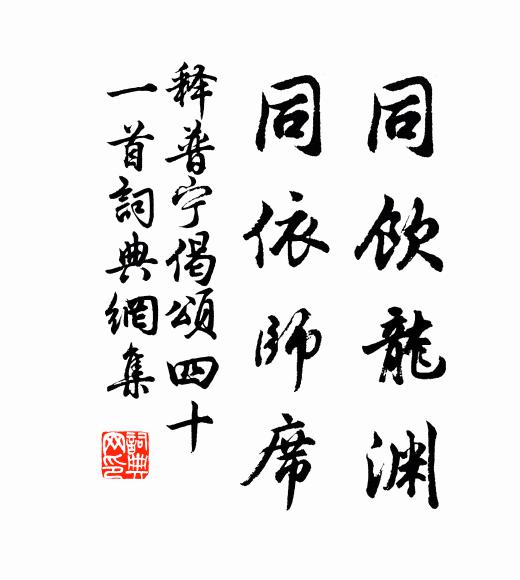 同飲龍渊
同依師席
释普宁偈頌四十
一首詞典網集
詞典网印